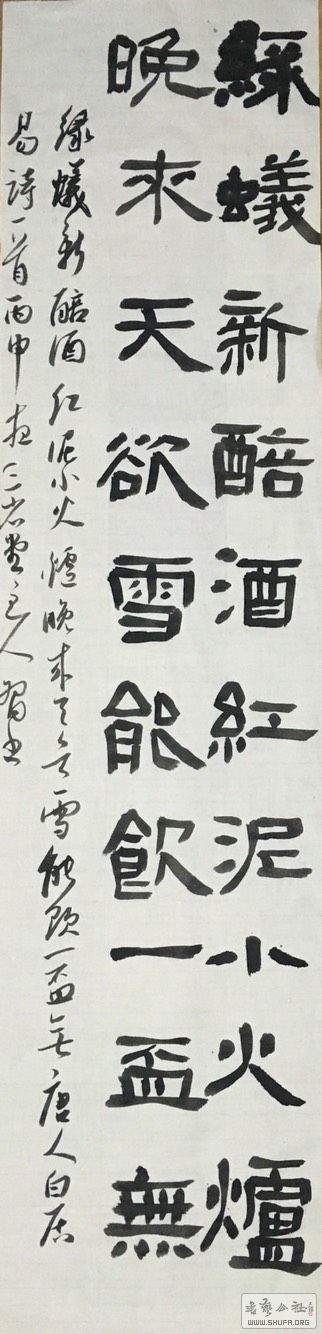 綠蟻新醅酒紅泥小火爐
晚來天欲雪能飲一盃無
綠蟻新醅酒红泥小火爐晚来天欲雪能飲一盃無唐人白居
易詩一首丙申夏三岩堂主人習书
書藝公社
WWW.SHUFA.ORG